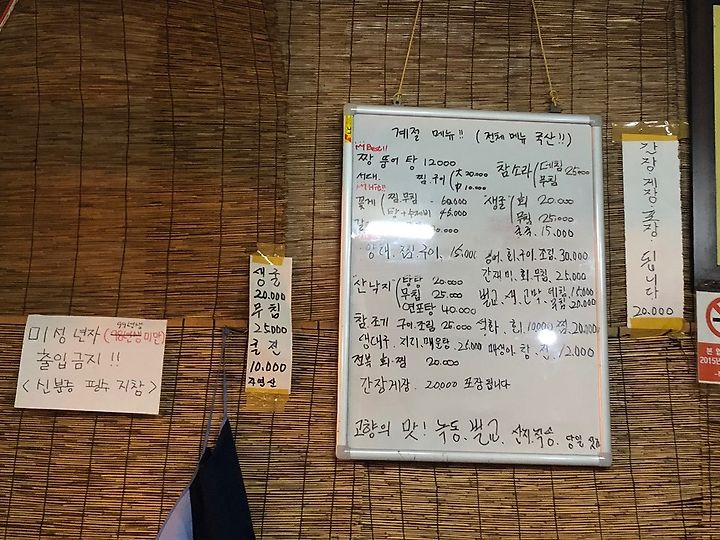 계절 메뉴!! (전체메뉴 국산!!)
짱뚱어탕 12000
서대. 찜.구이 (大 20.000
小 10.000
꽃게 (찜.무침 - 60.000
탕+수제비 45.000
참소라 (데침 25.000
무침
생굴 (회 20.000
무침 25.000
15.000
양태. 찜.구이. 15.000
병어. 회.구이.조림. 30.000
간재미. 회.무침. 25.000
산낙지 (탕탕 20.000
무침 25.000
연포탕 40.000
벌교.새.꼬막 데침 15.000
20.000
참조기 구이.조림 25.000
석화. 회. 10000 찜.20.000
생대구. 지리.매운탕. 25.000
매생이. 탕.전. 12.000
전복 회.찜 20.000
간장게장. 20000 포장됩니다
고향의 맛! 녹동.벌교. 산지직송. 당일
간장게장.포장.됩니다
20.000
생굴
20.000
무침
25.000
굴전
10.000
자연산
99년생
미성년자 (98년생미만)
출입금지!!
<신분증 필수 지참>
2015년